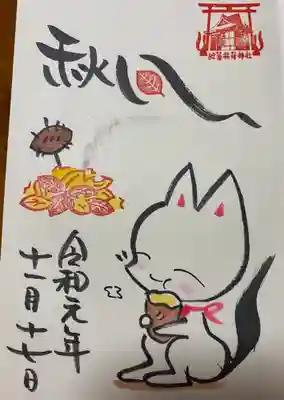 秋風
稲荷神社
令和元年
十一月十七日